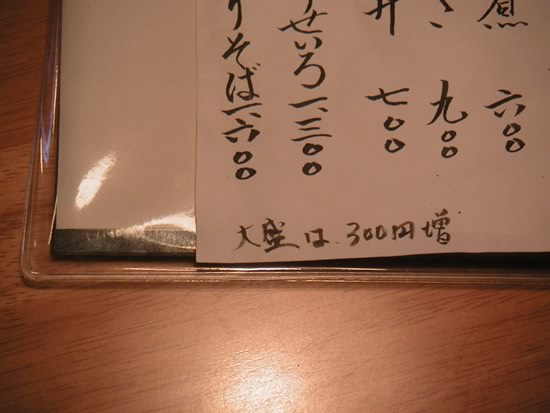 煮 六〇〇
九〇〇
丼 七〇〇
せいろ 一、三〇〇
りそば 一、六〇〇
大盛は、300円増